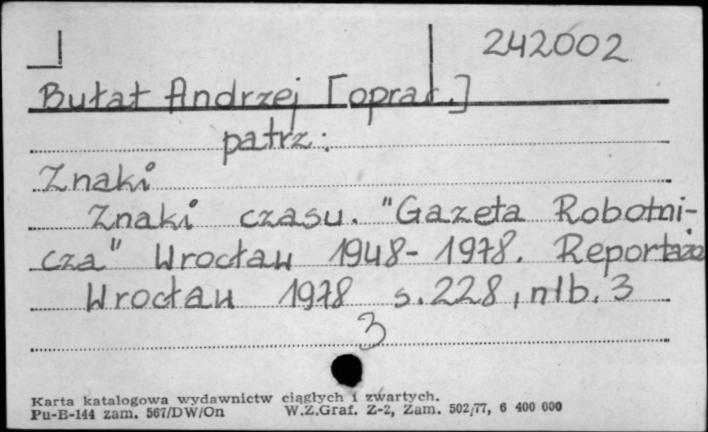 242002
Bułat Andrzej [oprac.]
patrz:
Znaki
Znaki czasu. "Gazeta Robotni-
cza" Wrocław 1948-1978. Reportaże
Wrocław 1978 s.228, nlb. 3
3
Karta katalogowa wydawnictw ciągłych i zwartych.
Pu-B-144 zam. 567/DW/On W.Z.Graf. Z-2, Zam. 502/77, 6 400 000